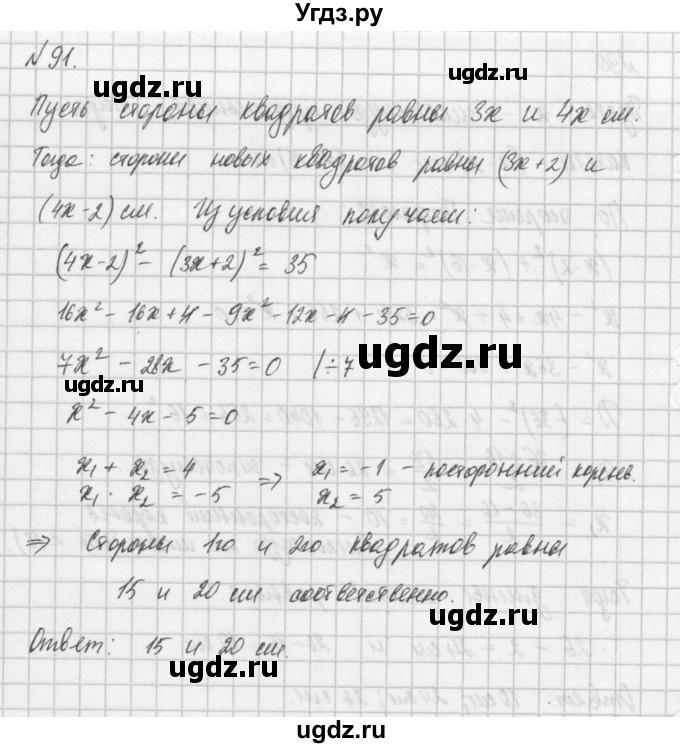 Угдз.ру
№91.
ugdz.ru ugdz.ru
Пусть стороны квадратов равны 3x и 4x см.
Тогда: стороны новых квадратов равны (3x+2) и
ugdz.ru
(4x-2) см. Из условия получаем:
(4x-2)² - (3x+2)² = 35
16x² - 16x + 4 - 9x² - 12x - 4 - 35 = 0
7x² - 28x - 35 = 0 |÷7
ugdz.ru
x² - 4x - 5 = 0
x₁ + x₂ = 4
x₁ · x₂ = -5
⇒ x₁ = -1 - посторонний корень.
x₂ = 5
ugdz.ru
⇒ Стороны 1го и 2го квадратов равны
15 и 20 см соответственно.
ugdz.ru
Ответ: 15 и 20 см.
ugdz.ru
Угдз.ру